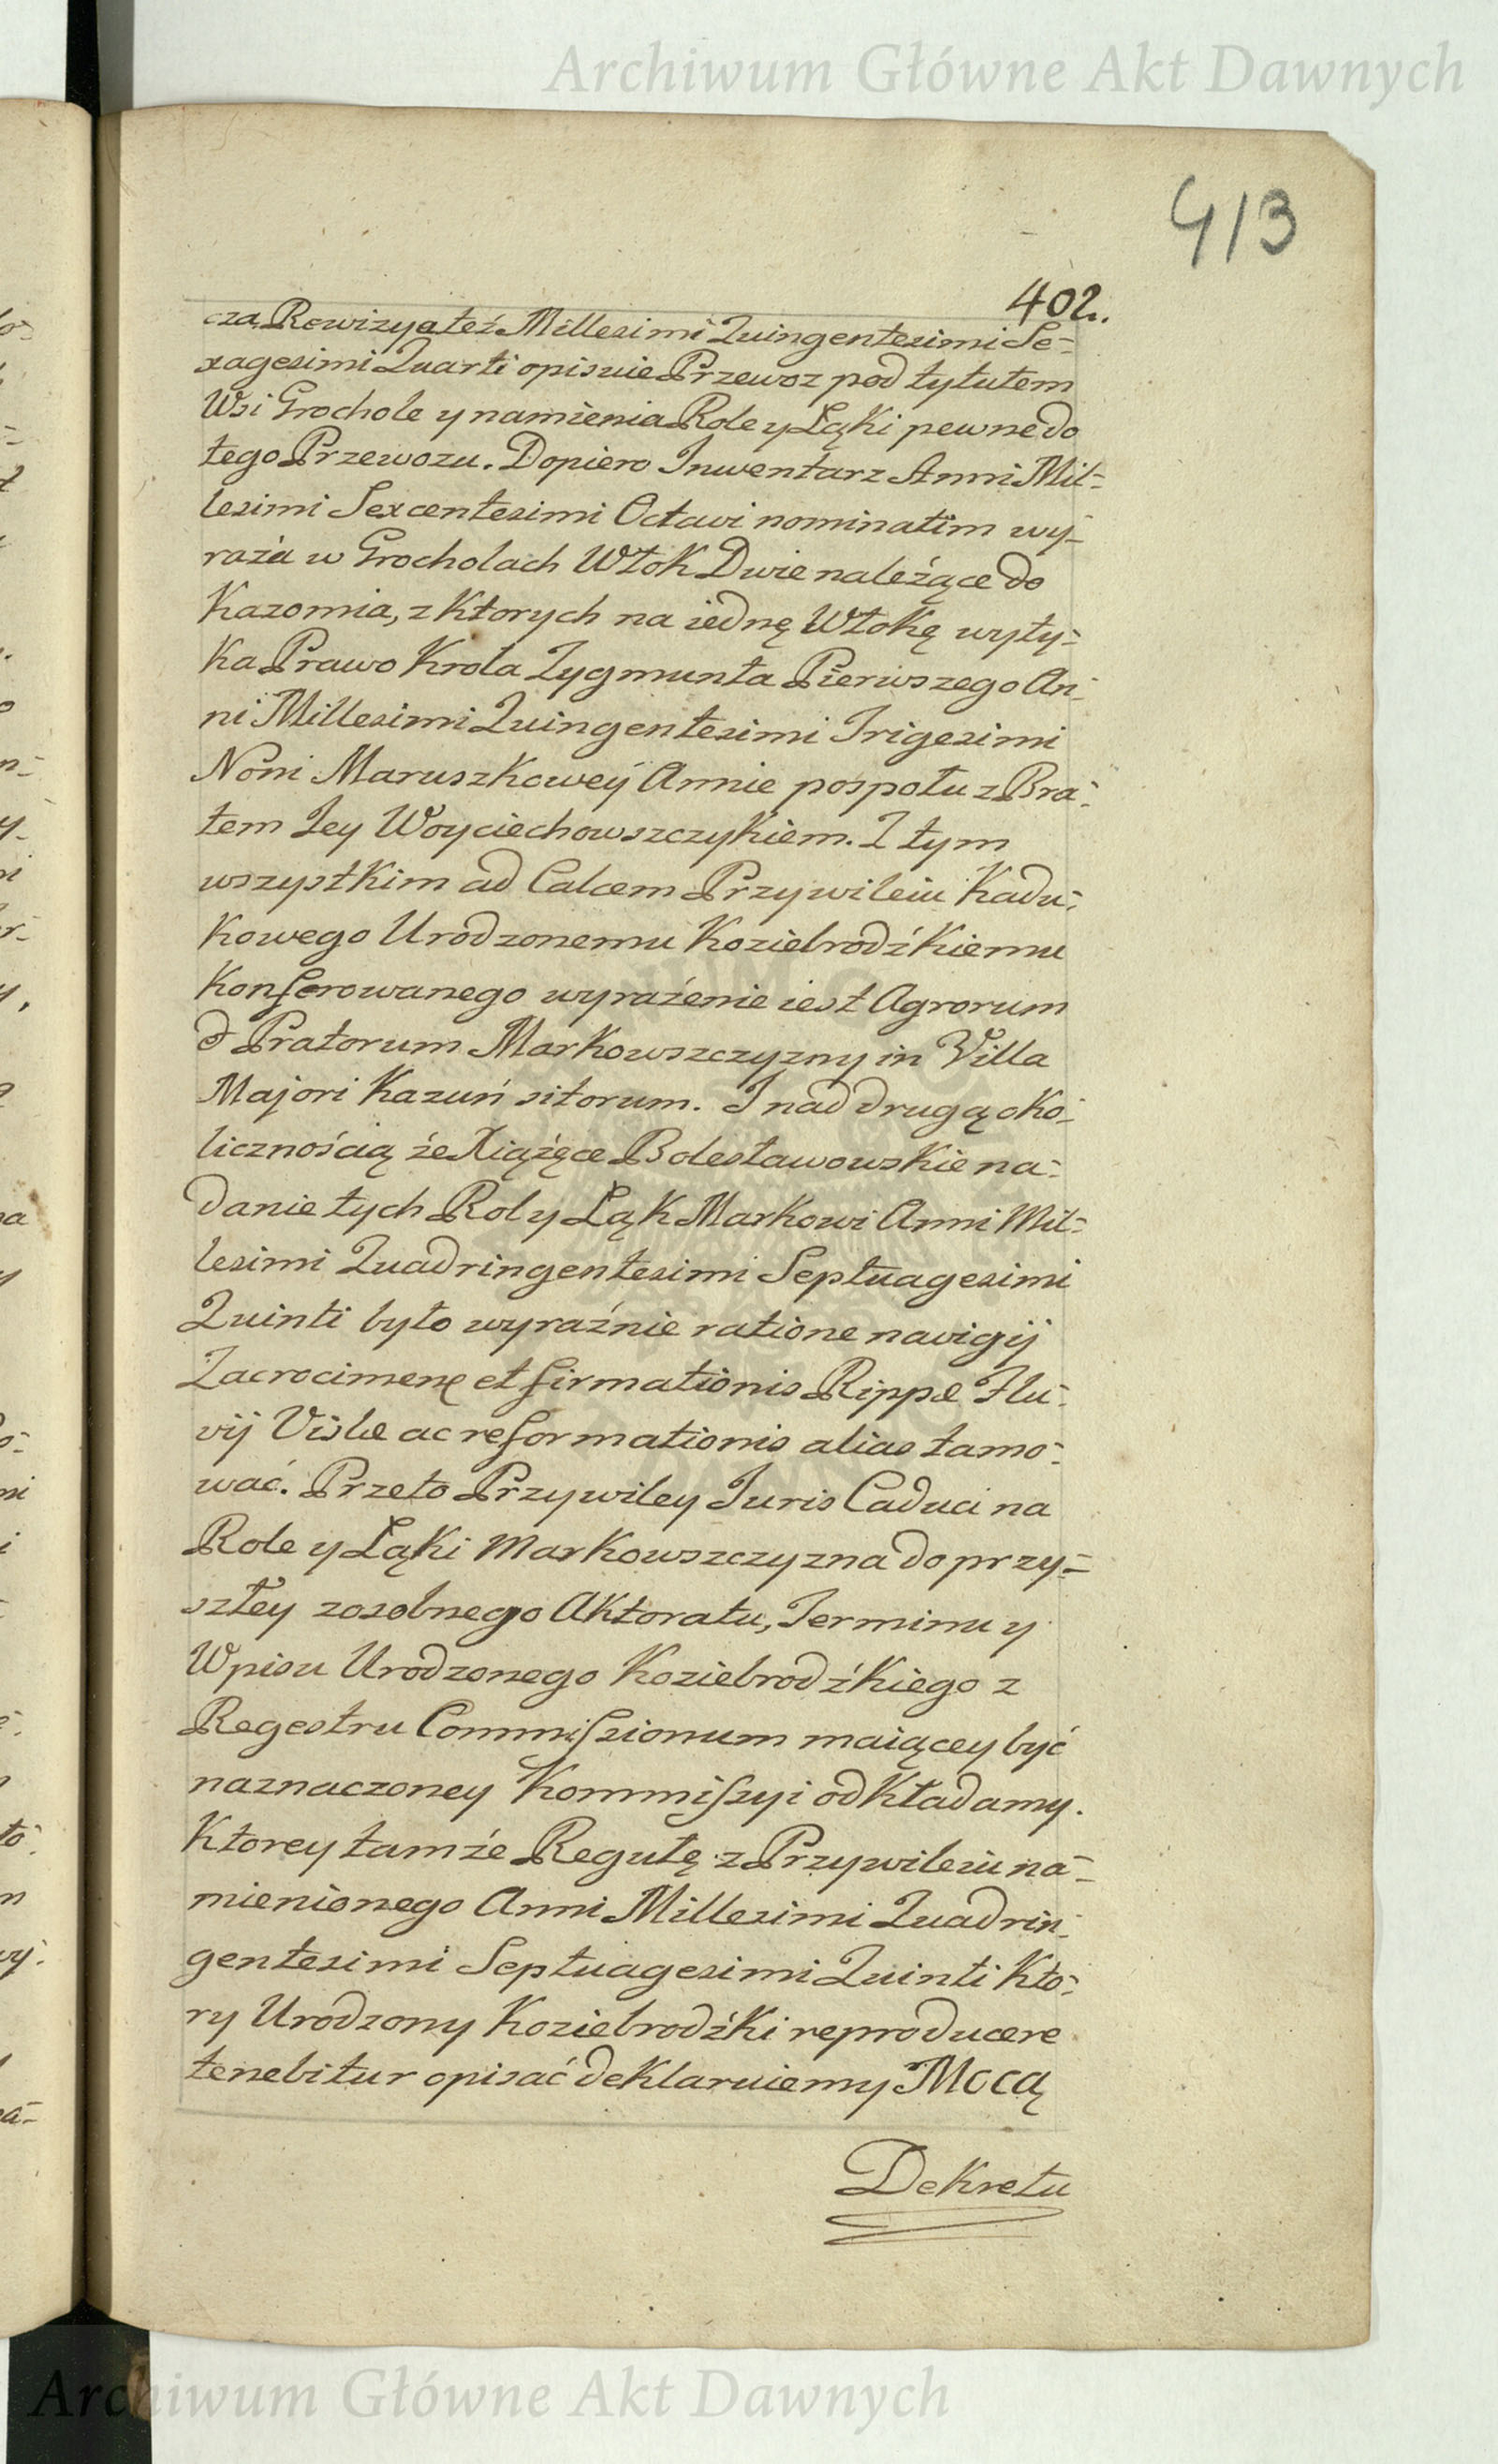 Archiwum Główne Akt Dawnych
413
402.
cza, Rewizya też Millesimi Quingentesimi Se=
xagesimi Quarti opisuie Przewoz pod tytułem
Wsi Grochole y namienia Role y Łąki pewne do
tego Przewozu. Dopiero Inwentarz Anni Mil=
lesimi Sexcentesimi Octavi nominatim wy=
raża w Grocholach Włok Dwie należące do
Kazomia, z Ktorych na iednę Włokę wyty=
Ka Prawo Krola Zygmunta Pierwszego An=
ni Millesimi Quingentesimi Trigesimi
Noni Maruszkowey Annie pospołu z Bra=
tem Jey Woyciechowszczykiem. Z tym
wszystkim ad Calcem Przywileiu Kadu=
Kowego Urodzonemu Koziebrodźkiemu
Konferowanego wyrażenie iest Agrorum
et Pratorum Markowszczyzny in Villa
Majori Kazuń sitorum. I nad drugą oko=
licznością że Xiążęce Bolesławowskie na=
danie tych Rol y Łąk Markowi Anni Mil=
lesimi Quadringentesimi Septuagesimi
Quinti było wyraźnie ratione navigij
Zacrocimenę et firmationis Rippæ Flu=
vij Vislæ ac reformationis alias tamo=
wać. Przeto Przywiley Juris Caduci na
Role y Łąki Markowszczyzna do przy=
szłey zosobnego Aktoratu, Terminu y
Wpisu Urodzonego Koziebrodźkiego z
Regestru Commissionum maiącey być
naznaczoney Kommissyi odkładamy.
Ktorey tamże Regułę z Przywileiu na=
mienionego Anni Millesimi Quadrin=
gentesimi Septuagesimi Quinti Kto=
ry Urodzony Koziebrodźki reproducere
tenebitur opisać deklaruiemy Mocą
Dekretu
Archiwum Główne Akt Dawnych